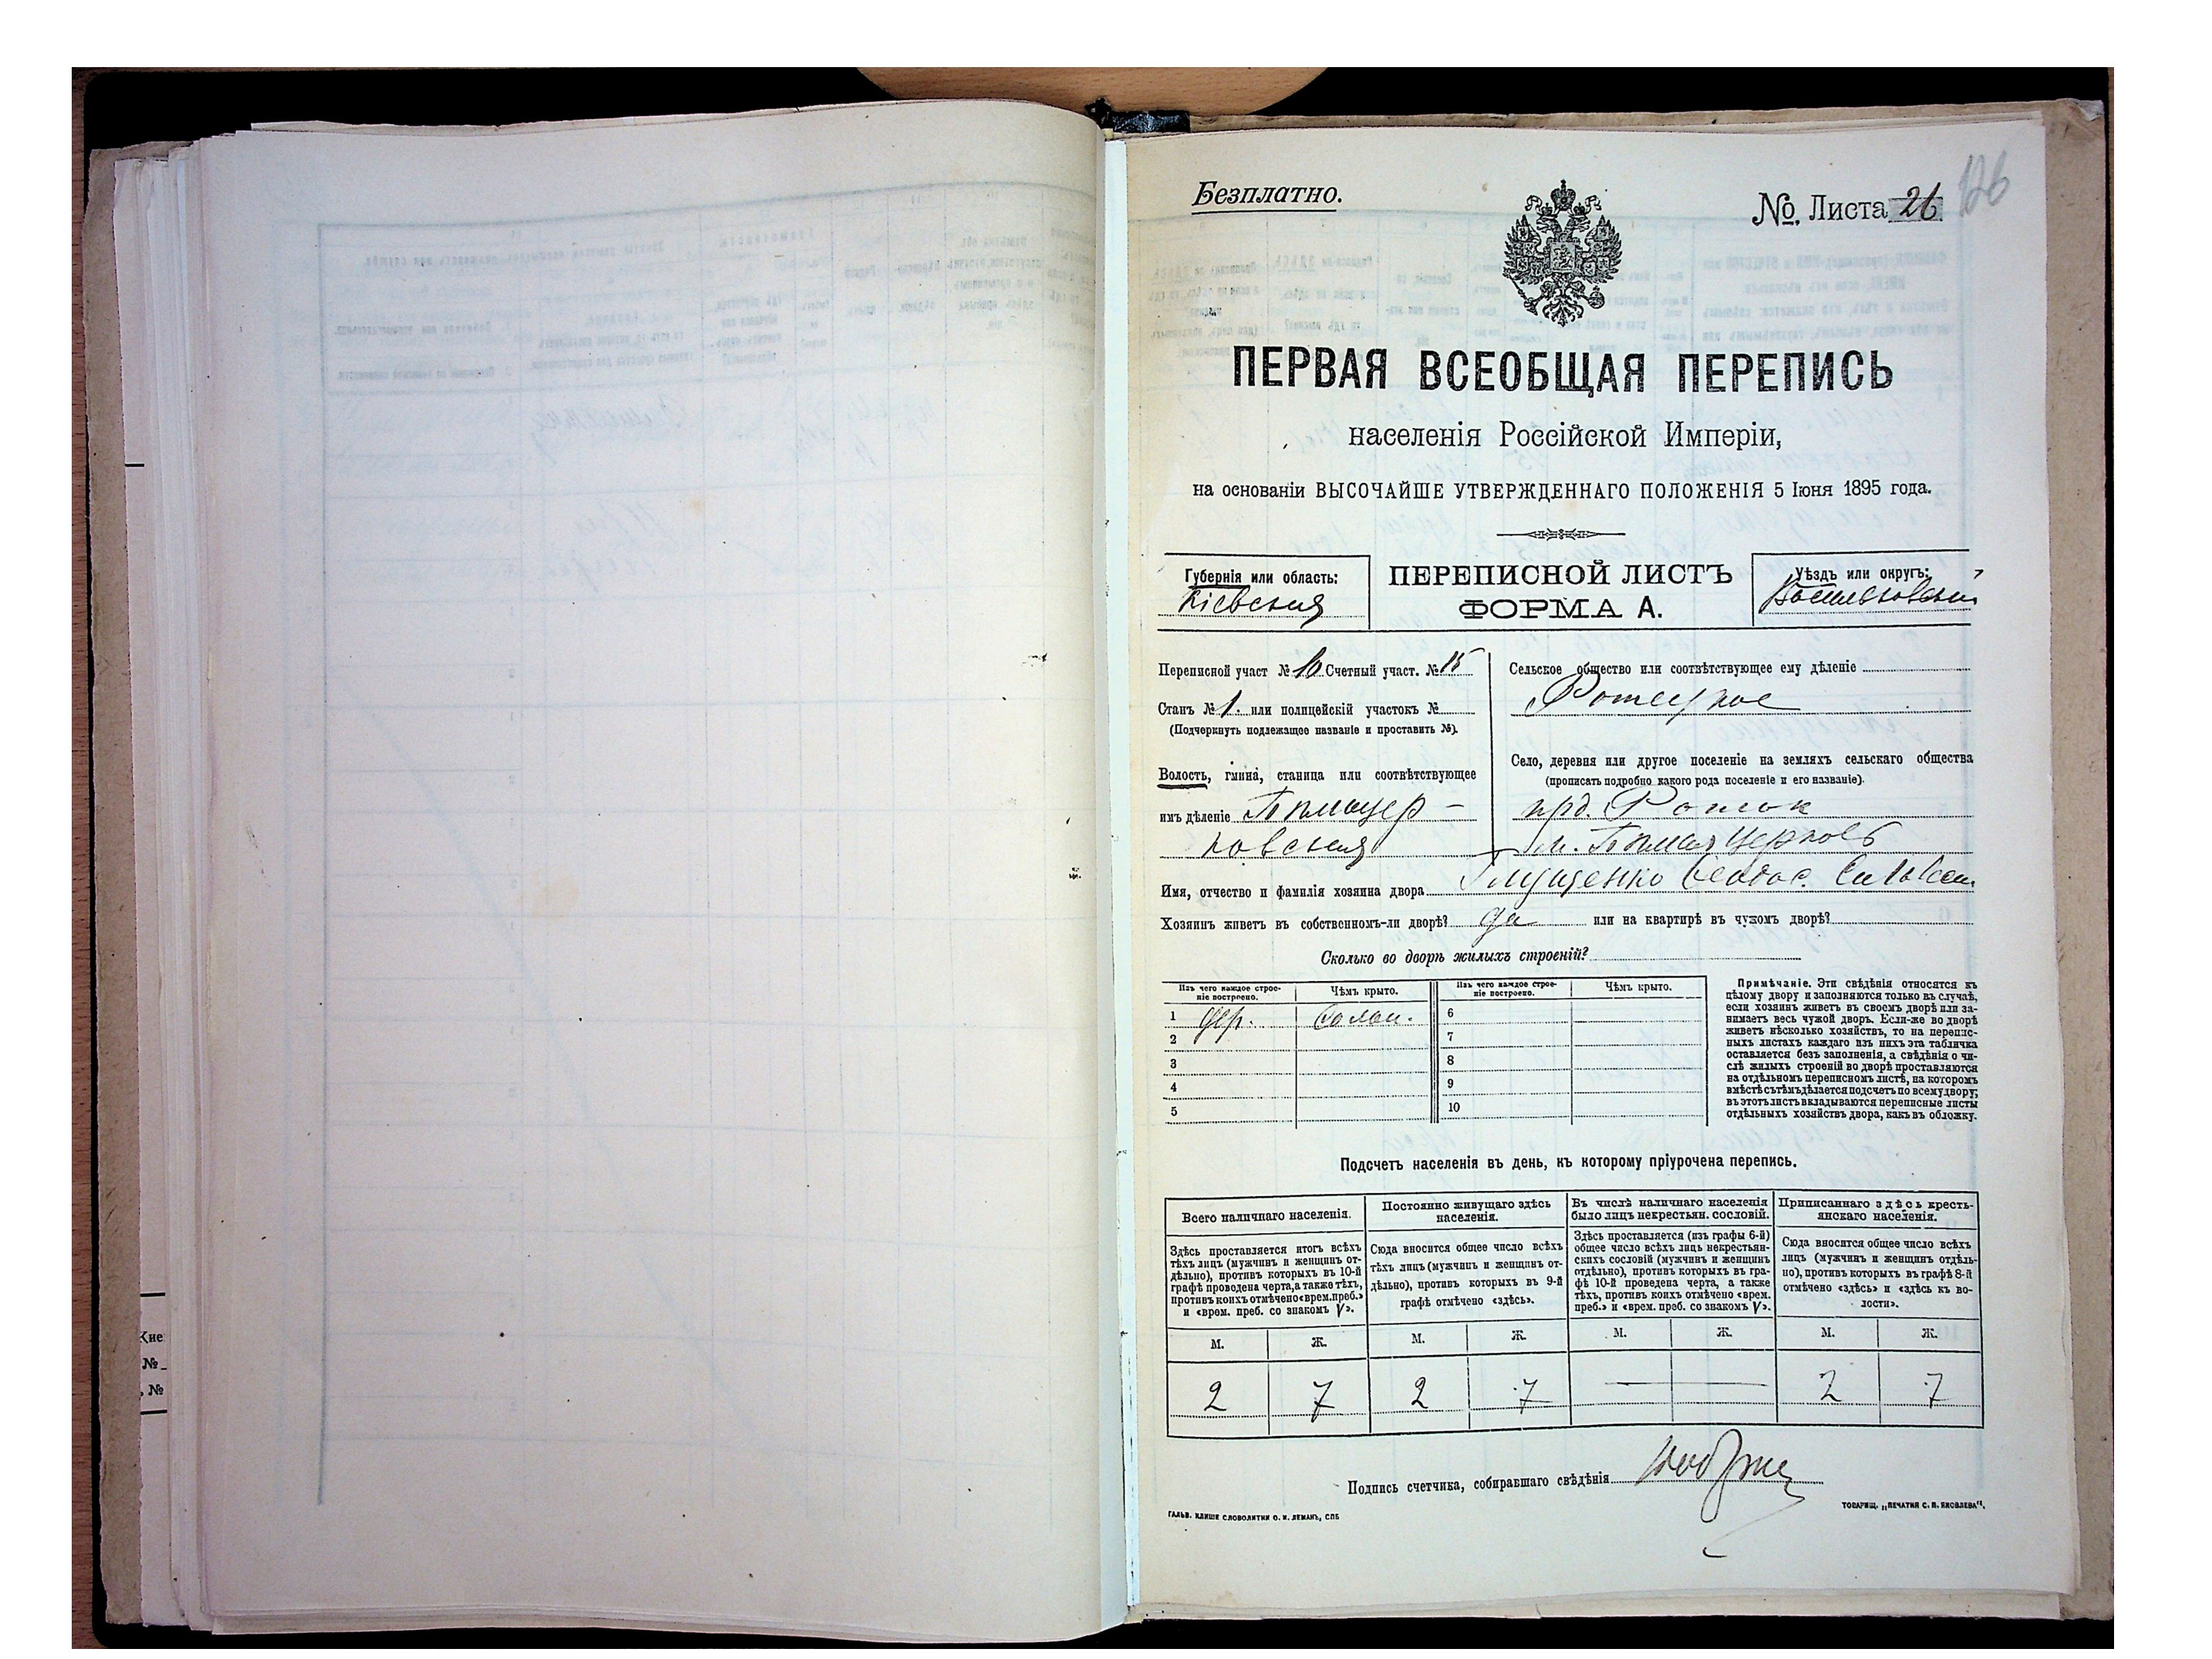 Безплатно.
№ Листа 26
126
ПЕРВАЯ ВСЕОБЩАЯ ПЕРЕПИСЬ
населенія Россійской Имперіи,
на основаніи ВЫСОЧАЙШЕ УТВЕРЖДЕННАГО ПОЛОЖЕНІЯ 5 Іюня 1895 года.
Губернія или область:
Кіевская
ПЕРЕПИСНОЙ ЛИСТЪ
ФОРМА А.
Уѣздъ или округъ:
Васильковскій
Переписной участ № 10 Счетный участ. № 15
Станъ № 1. или полицейскій участокъ №
(Подчеркнуть подлежащее названіе и проставить №).
Волость, гмина, станица или соотвѣтствующее
имъ дѣленіе Бѣлоцер-
ковская
Сельское общество или соотвѣтствующее ему дѣленіе
Ротецкое
Село, деревня или другое поселеніе на земляхъ сельскаго общества
(прописать подробно какого рода поселеніе и его названіе).
прд. Роток
м. Бѣлая Церковь
Имя, отчество и фамилія хозяина двора Глущенко Ѳеодос.
Хозяинъ живетъ въ собственномъ-ли дворѣ? да или на квартирѣ въ чужомъ дворѣ?
Сколько во дворѣ жилыхъ строеній?
Изъ чего каждое строе-
ніе построено.
Чѣмъ крыто.
Изъ чего каждое строе-
ніе построено.
Чѣмъ крыто.
1 дер. солом. 6
2 7
3 8
4 9
5 10
Примѣчаніе. Эти свѣдѣнія относятся къ
цѣлому двору и заполняются только въ случаѣ,
если хозяинъ живетъ въ своемъ дворѣ или за-
нимаетъ весь чужой дворъ. Если-же во дворѣ
живетъ нѣсколько хозяйствъ, то на перепис-
ныхъ листахъ каждаго изъ нихъ эта табличка
оставляется безъ заполненія, а свѣдѣнія о чи-
слѣ жилыхъ строеній во дворѣ проставляются
на отдѣльномъ переписномъ листѣ, на которомъ
вмѣстѣ съ тѣмъ дѣлается подсчетъ по всему двору;
въ этотъ листъ вкладываются переписные листы
отдѣльныхъ хозяйствъ двора, какъ въ обложку.
Подсчетъ населенія въ день, къ которому пріурочена перепись.
Всего наличнаго населенія.
Здѣсь проставляется итогъ всѣхъ
тѣхъ лицъ (мужчинъ и женщинъ от-
дѣльно), противъ которыхъ въ 10-й
графѣ проводена черта, а также тѣхъ,
противъ коихъ отмѣчено «врем. преб.»
и «врем. преб. со знакомъ V».
Постоянно живущаго здѣсь
населенія.
Сюда вносится общее число всѣхъ
тѣхъ лицъ (мужчинъ и женщинъ от-
дѣльно), противъ которыхъ въ 9-й
графѣ отмѣчено «здѣсь».
Въ числѣ наличнаго населенія
было лицъ некрестьян. сословій.
Здѣсь проставляется (изъ графы 6-й)
общее число всѣхъ лицъ некрестьян-
скихъ сословій (мужчинъ и женщинъ
отдѣльно), противъ которыхъ въ гра-
фѣ 10-й проведена черта, а также
тѣхъ, противъ коихъ отмѣчено «врем.
преб.» и «врем. преб. со знакомъ V».
Приписаннаго здѣсь кресть-
янскаго населенія.
Сюда вносится общее число всѣхъ
лицъ (мужчинъ и женщинъ отдѣль-
но), противъ которыхъ въ графѣ 8-й
отмѣчено «здѣсь» и «здѣсь къ во-
лости».
М. Ж. М. Ж. М. Ж. М. Ж.
2 7 2 7 — — 2 7
Подпись счетчика, собиравшаго свѣдѣнія
ГАЛЬВ. КЛИШЕ СЛОВОЛИТНИ О. И. ЛЕМАНЪ, СПБ
ТОВАРИЩ. „ПЕЧАТНЯ С. П. ЯКОВЛЕВА“.
Кие
№
, №